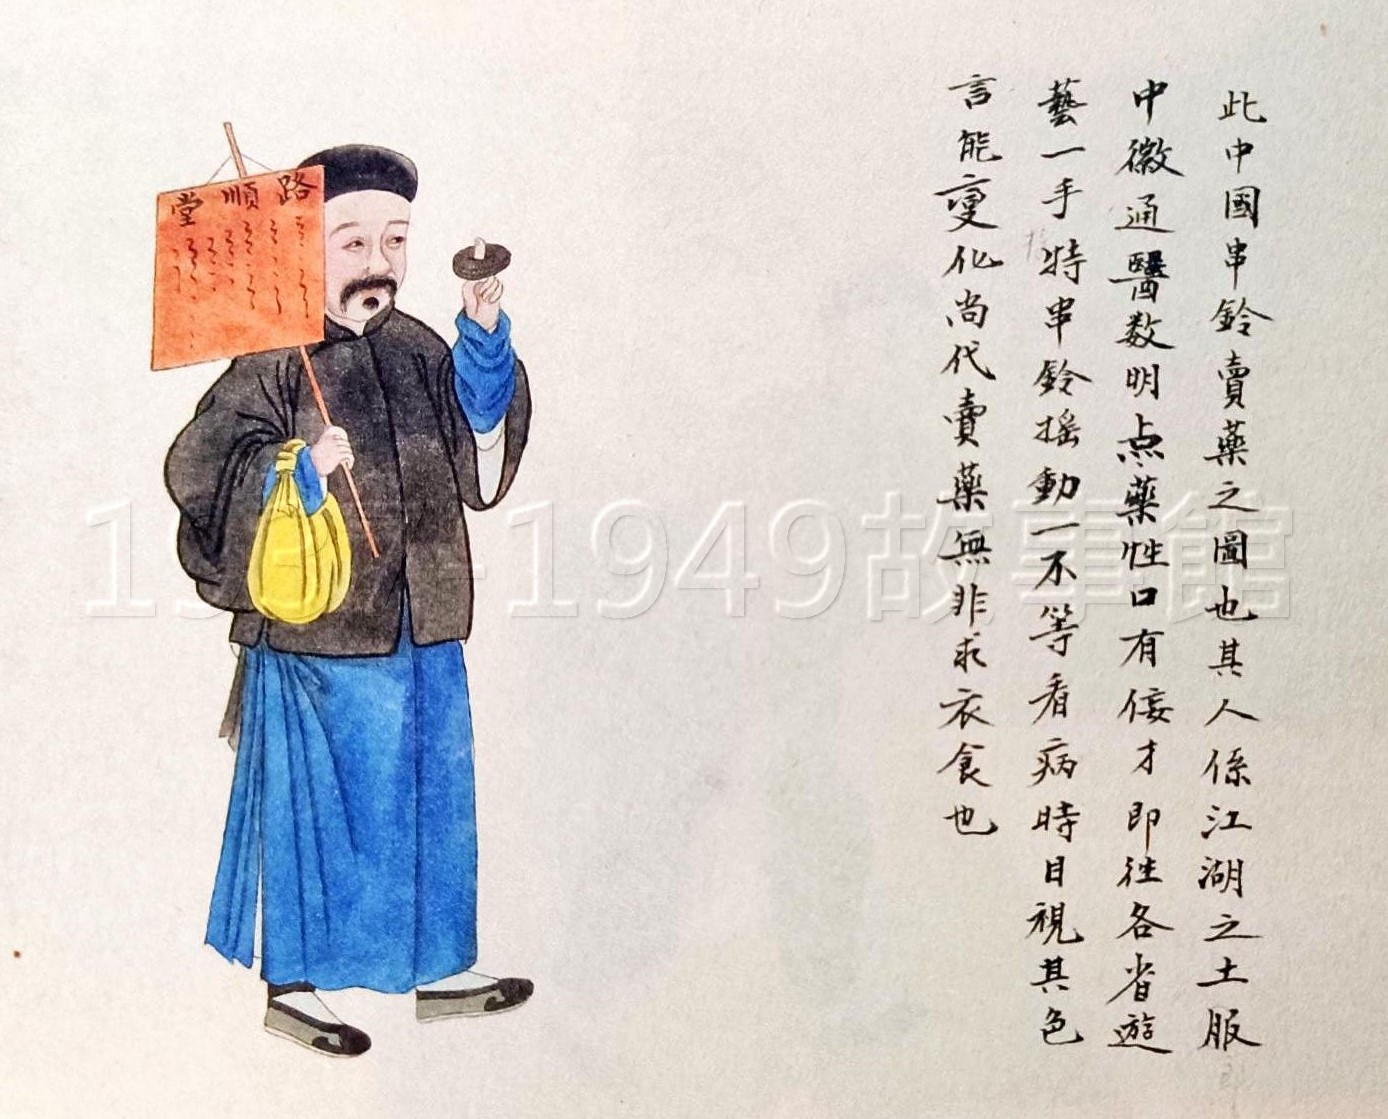 此中國串鈴賣藥之圖也其人係江湖之士服
中徽通醫数明点藥性口有倿才即徃各省遊
藝一手特串鈴摇動一不等看病時目視其色
言能变化尚代賣藥無非求衣食也
路順堂
1949故事館